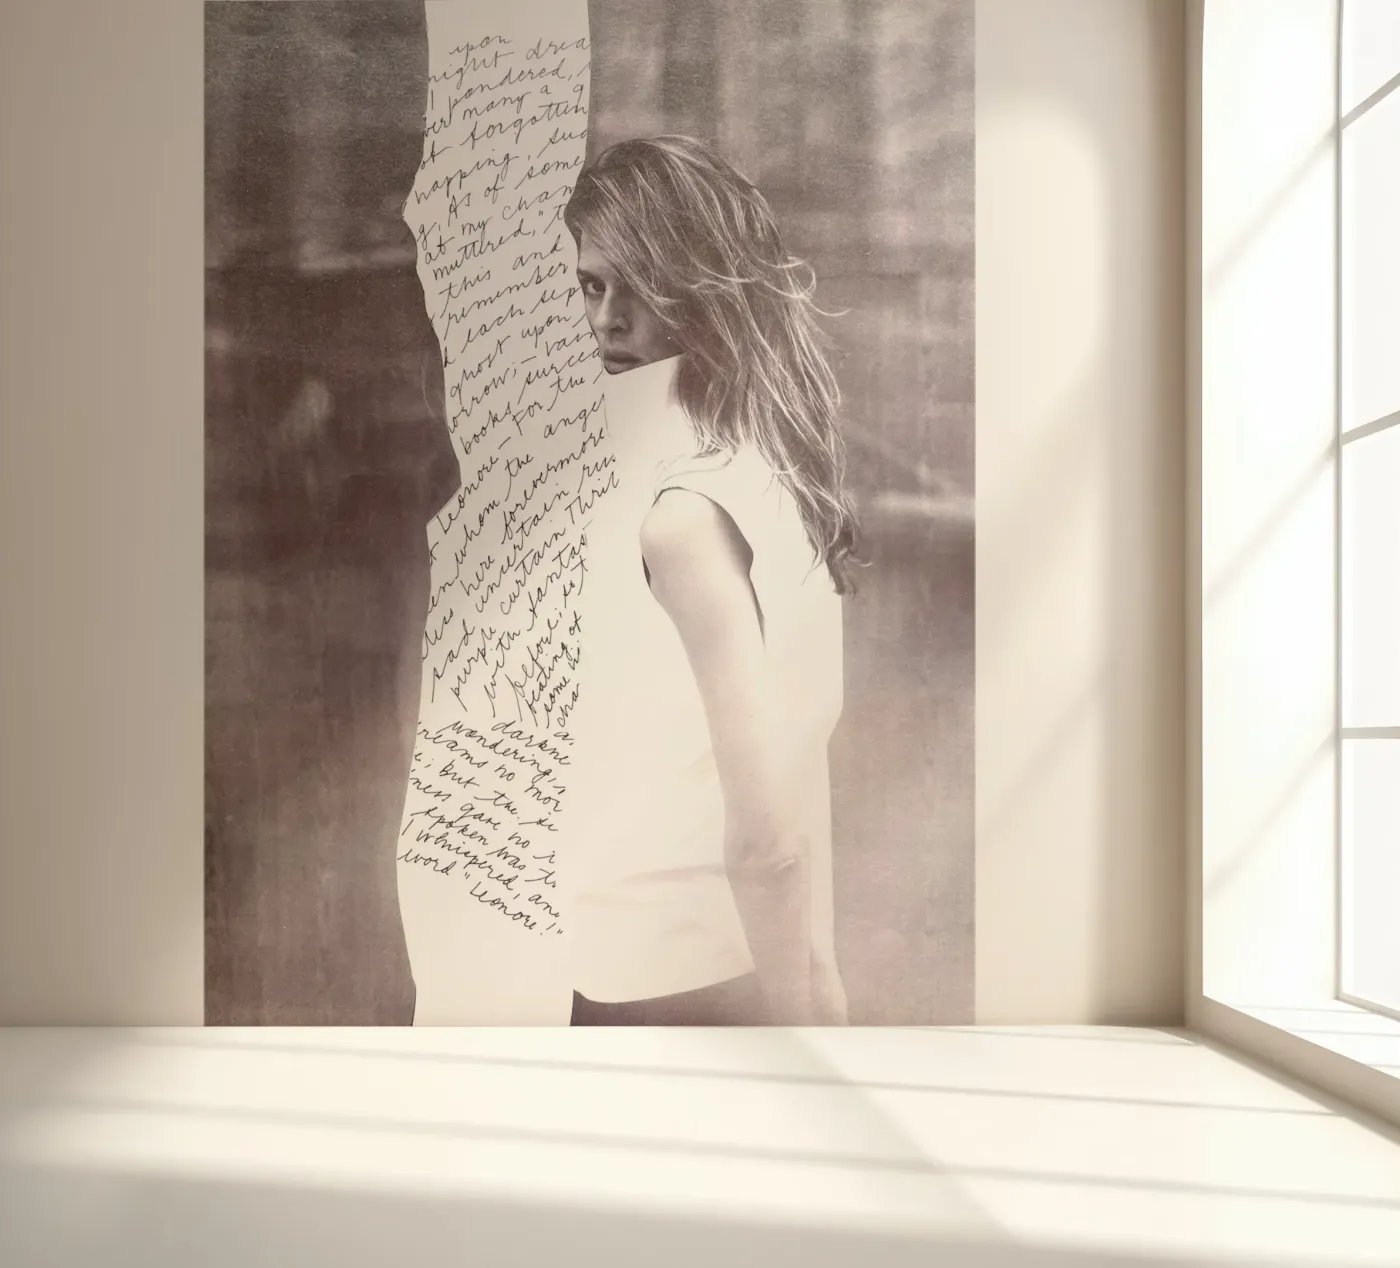 upon
night drea
I pondered,
ver many a q
of forgotten
napping, sud
g, As of some
at my cham
muttered, "t
this and
remember
d each sep
ghost upon
orrow; — vain
books surcea
— For the
Leonore — ange
whom the
en forevermore
less here
sad uncertain rus
purple curtain Thril
with fantas
before; so t
beating of
some vi
cha
a
darkne
wondering,
reams no mor
; But the si
ness gave no
spoken was
I whispered, an
word "Leonore!"